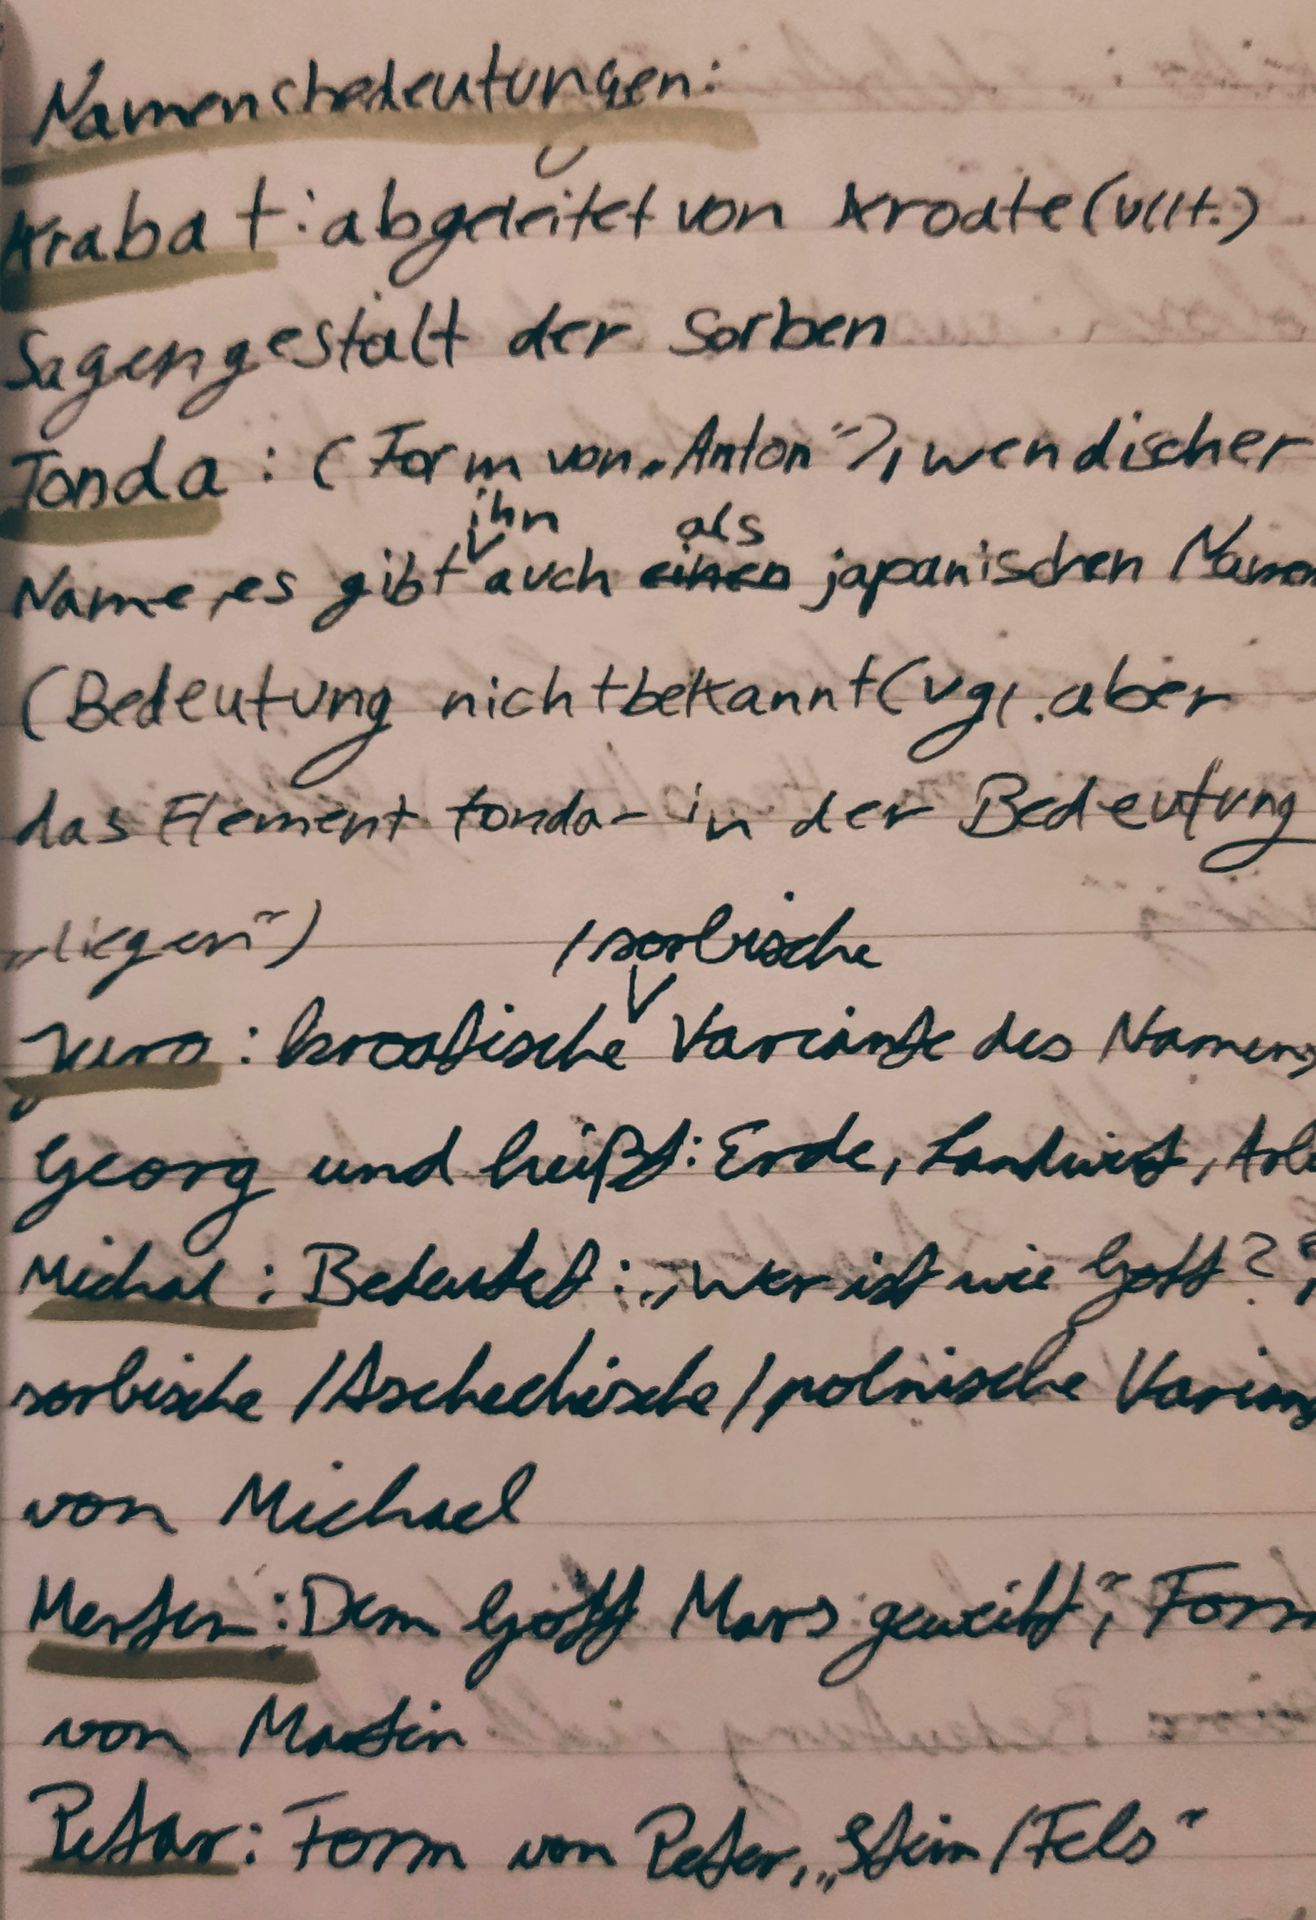 Namensbedeutungen:
Krabat: abgeleitet von Kroate (vllt.)
Sagengestalt der Sorben
Tonda: (Form von „Anton"), wendischer
ihn als
Name, es gibt auch einen japanischen Namen
(Bedeutung nicht bekannt (vgl. aber
das Element tonda- in der Bedeutung
„liegen")
/sorbische
Juro: kroatische Variante des Namens
Georg und heißt: Erde, Landwirt, Arb
Michal: Bedeutet: „Wer ist wie Gott?"
sorbische/tschechische/polnische Varian
von Michael
Merten: Dem Gott Mars geweiht", Form
von Martin
Petar: Form von Peter, „Stein/Fels"